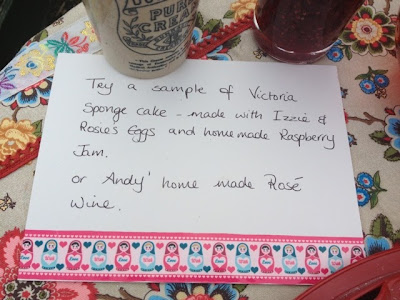 PURE
CREAM
Try a sample of Victoria
Sponge cake - made with Izzie &
Rosie's Eggs and homemade Raspberry
Jam.
or Andy' home made Rosé
Wine.